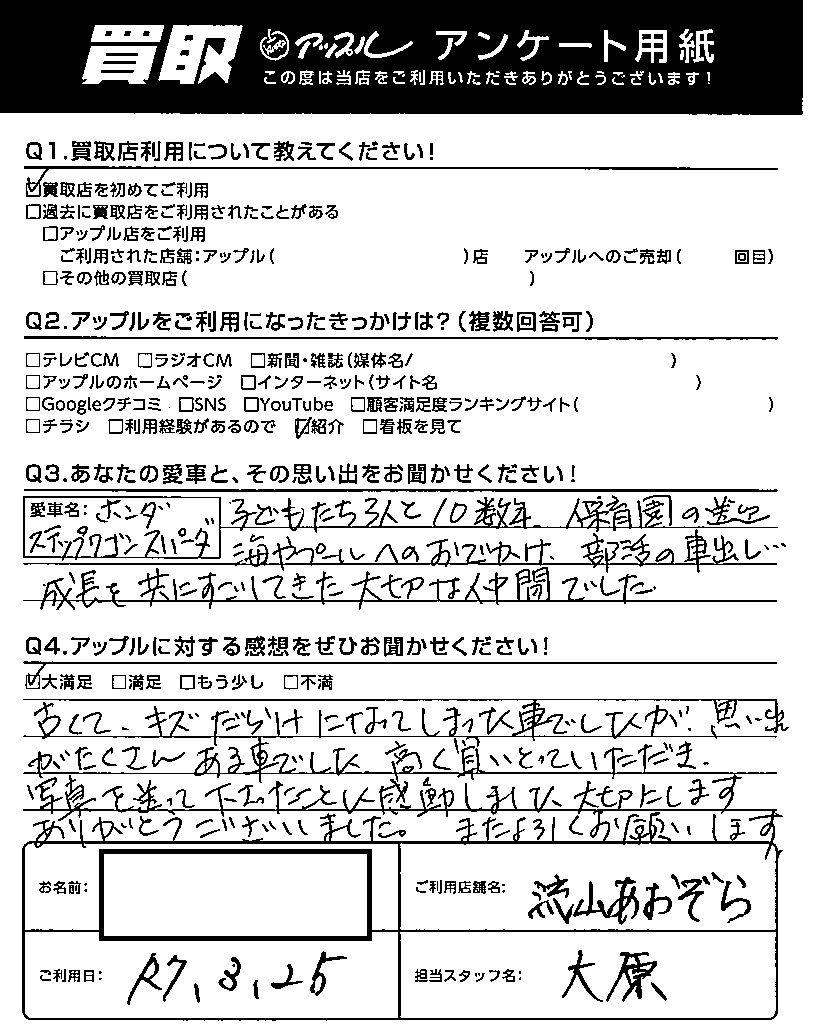 買取 アップル アンケート用紙
この度は当店をご利用いただきありがとうございます!
Q1.買取店利用について教えてください!
☑買取店を初めてご利用
□過去に買取店をご利用されたことがある
□アップル店をご利用
ご利用された店舗:アップル( )店 アップルへのご売却( 回目)
□その他の買取店( )
Q2.アップルをご利用になったきっかけは?(複数回答可)
□テレビCM □ラジオCM □新聞・雑誌(媒体名/ )
□アップルのホームページ □インターネット(サイト名 )
□Googleクチコミ □SNS □YouTube □顧客満足度ランキングサイト( )
□チラシ □利用経験があるので ☑紹介 □看板を見て
Q3.あなたの愛車と、その思い出をお聞かせください!
愛車名:ホンダ
ステップワゴンスパーダ
子どもたち3人と10数年、保育園の送迎
海やプールへのおでかけ、部活の車出し…
成長を共にすごしてきた大切な仲間でした
Q4.アップルに対する感想をぜひお聞かせください!
☑大満足 □満足 □もう少し □不満
古くて、キズだらけになってしまった車でしたが、思い出
がたくさんある車でした、高く買いとっていただき、
写真を送って下さったことに感動しました、大切にします
ありがとうございました。またよろしくお願いします
お名前:
ご利用店舗名: 流山あおぞら
ご利用日: R7,8,25
担当スタッフ名: 大原